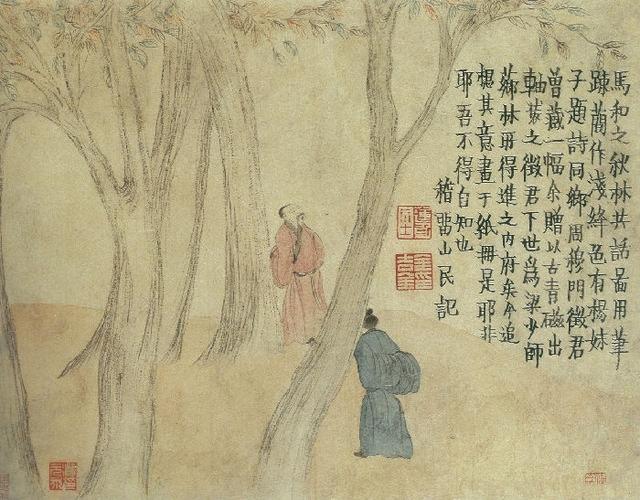 馬和之秋林共話圖用筆
踈蕳作淺絳色有楊妹
子題詩同鄉周穆門徵君
曾藏一幅余贈以古青磁出
軸裝之徵君下世為梁少師
薌林用得進之內府矣今追
想其意畫于紙冊是耶非
耶吾不得自知也
稽留山民記